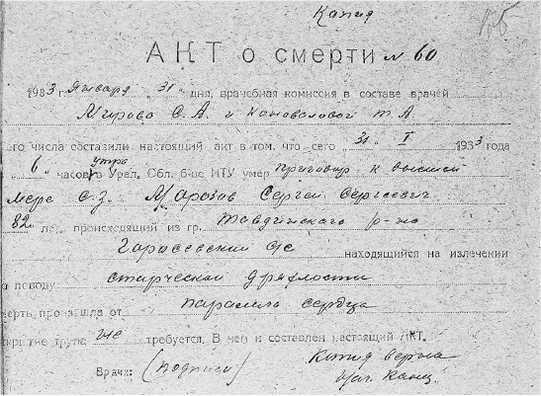 Копия
АКТ о смерти № 60
1933 г. Января 31 дня, врачебная комиссия в составе врачей
С. А. и Коноваловой Т А
его числа составили настоящий акт в том, что сего 31 I 1933 года
6 часов утра Урал. Обл. б-це ИТУ умер приговор к высшей
мере с.з. Марозов Сергей Сергеевич
82 лет, происходящий из гр. Тавдинского р-на
с/с находящийся на излечении
по поводу старческой дряхлости
смерть произошла от паралича сердца
вскрытие трупа не требуется. В чем и составлен настоящий АКТ.
Врачи: (подписи) Копия верна
Нач. Канц.